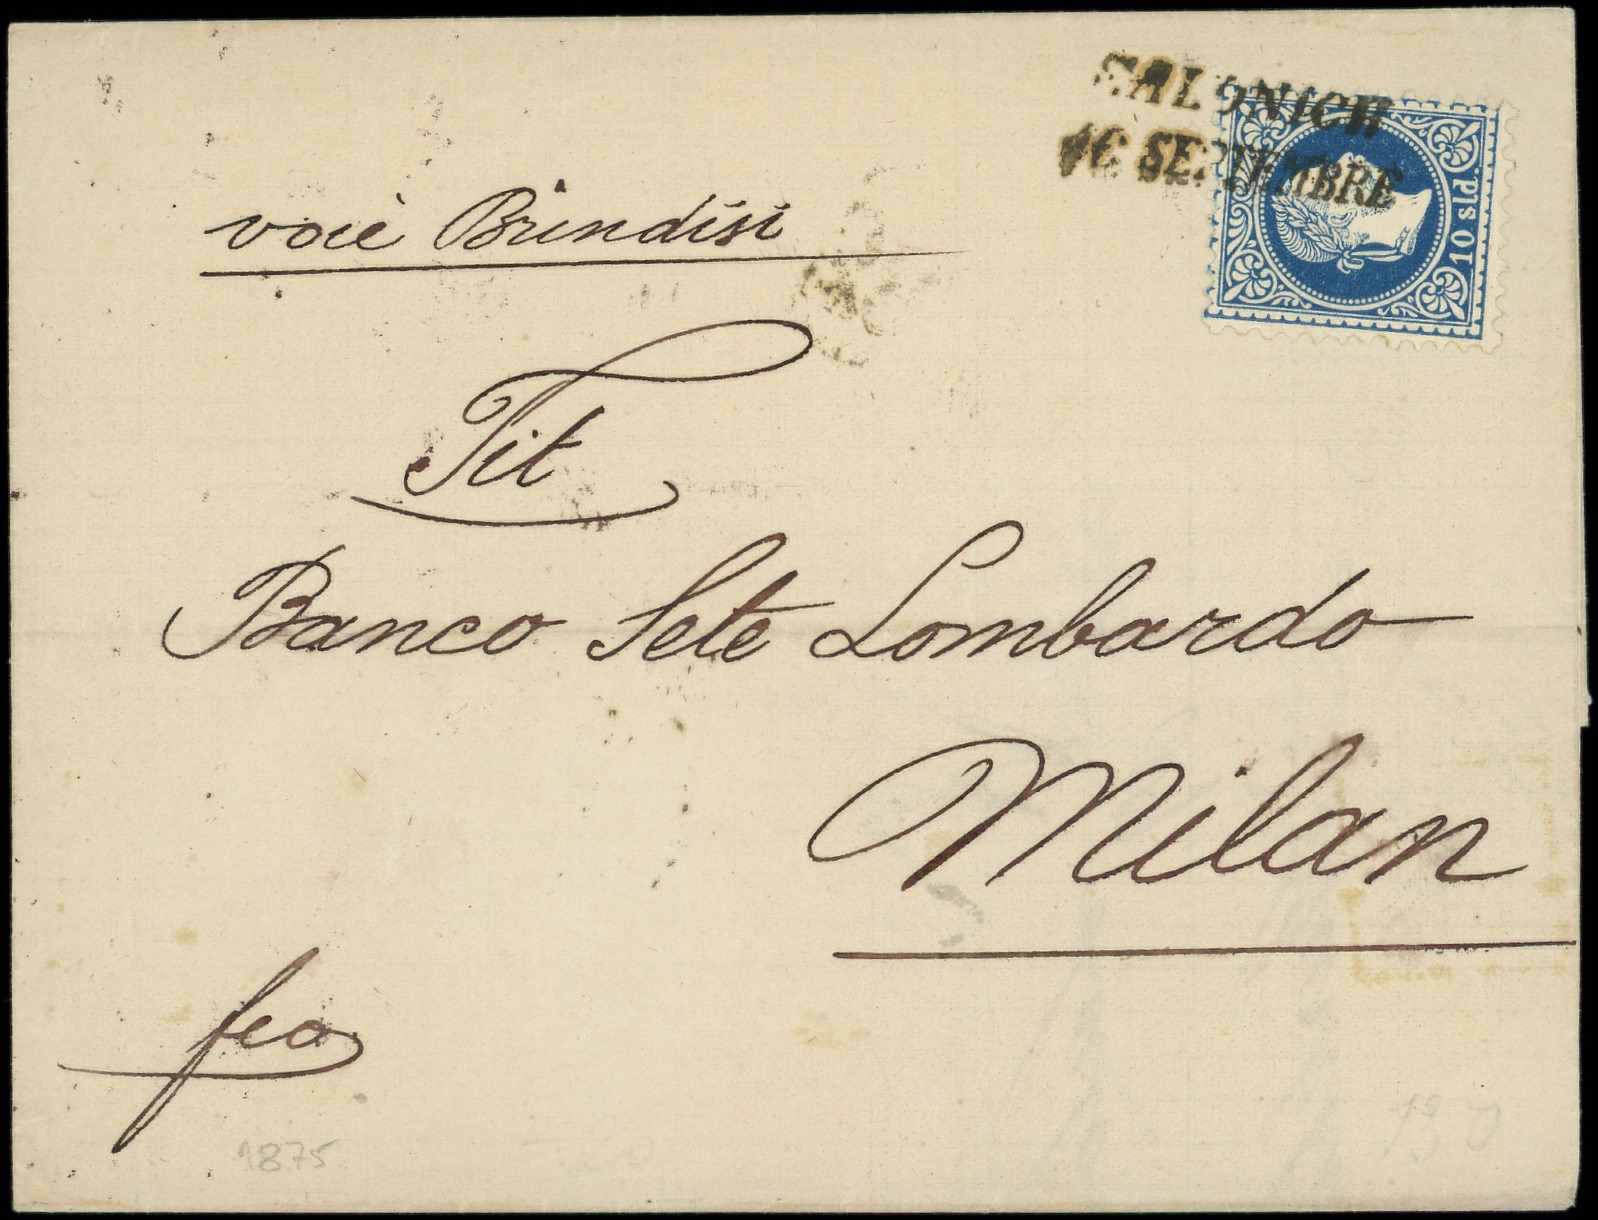 SALONICH
16 SEPTEMBRE
10 sld.
voie Brindisi
Tit
Banco Sete Lombardo
Milan
fco
1875